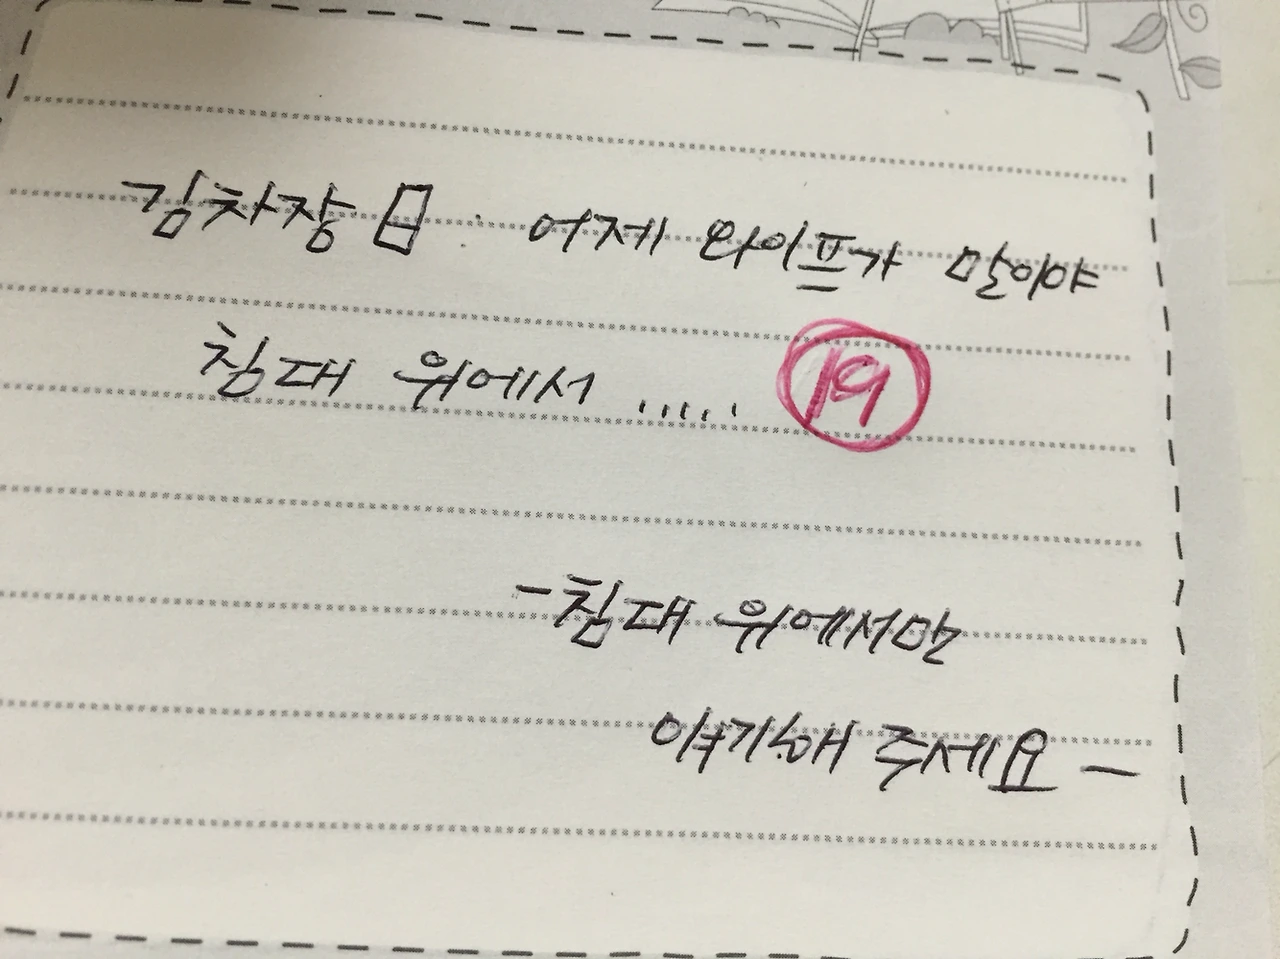 김차장 日. 어제 와이프가 말이야
침대 위에서 ..... 19
-침대 위에서만
이야기해 주세요-